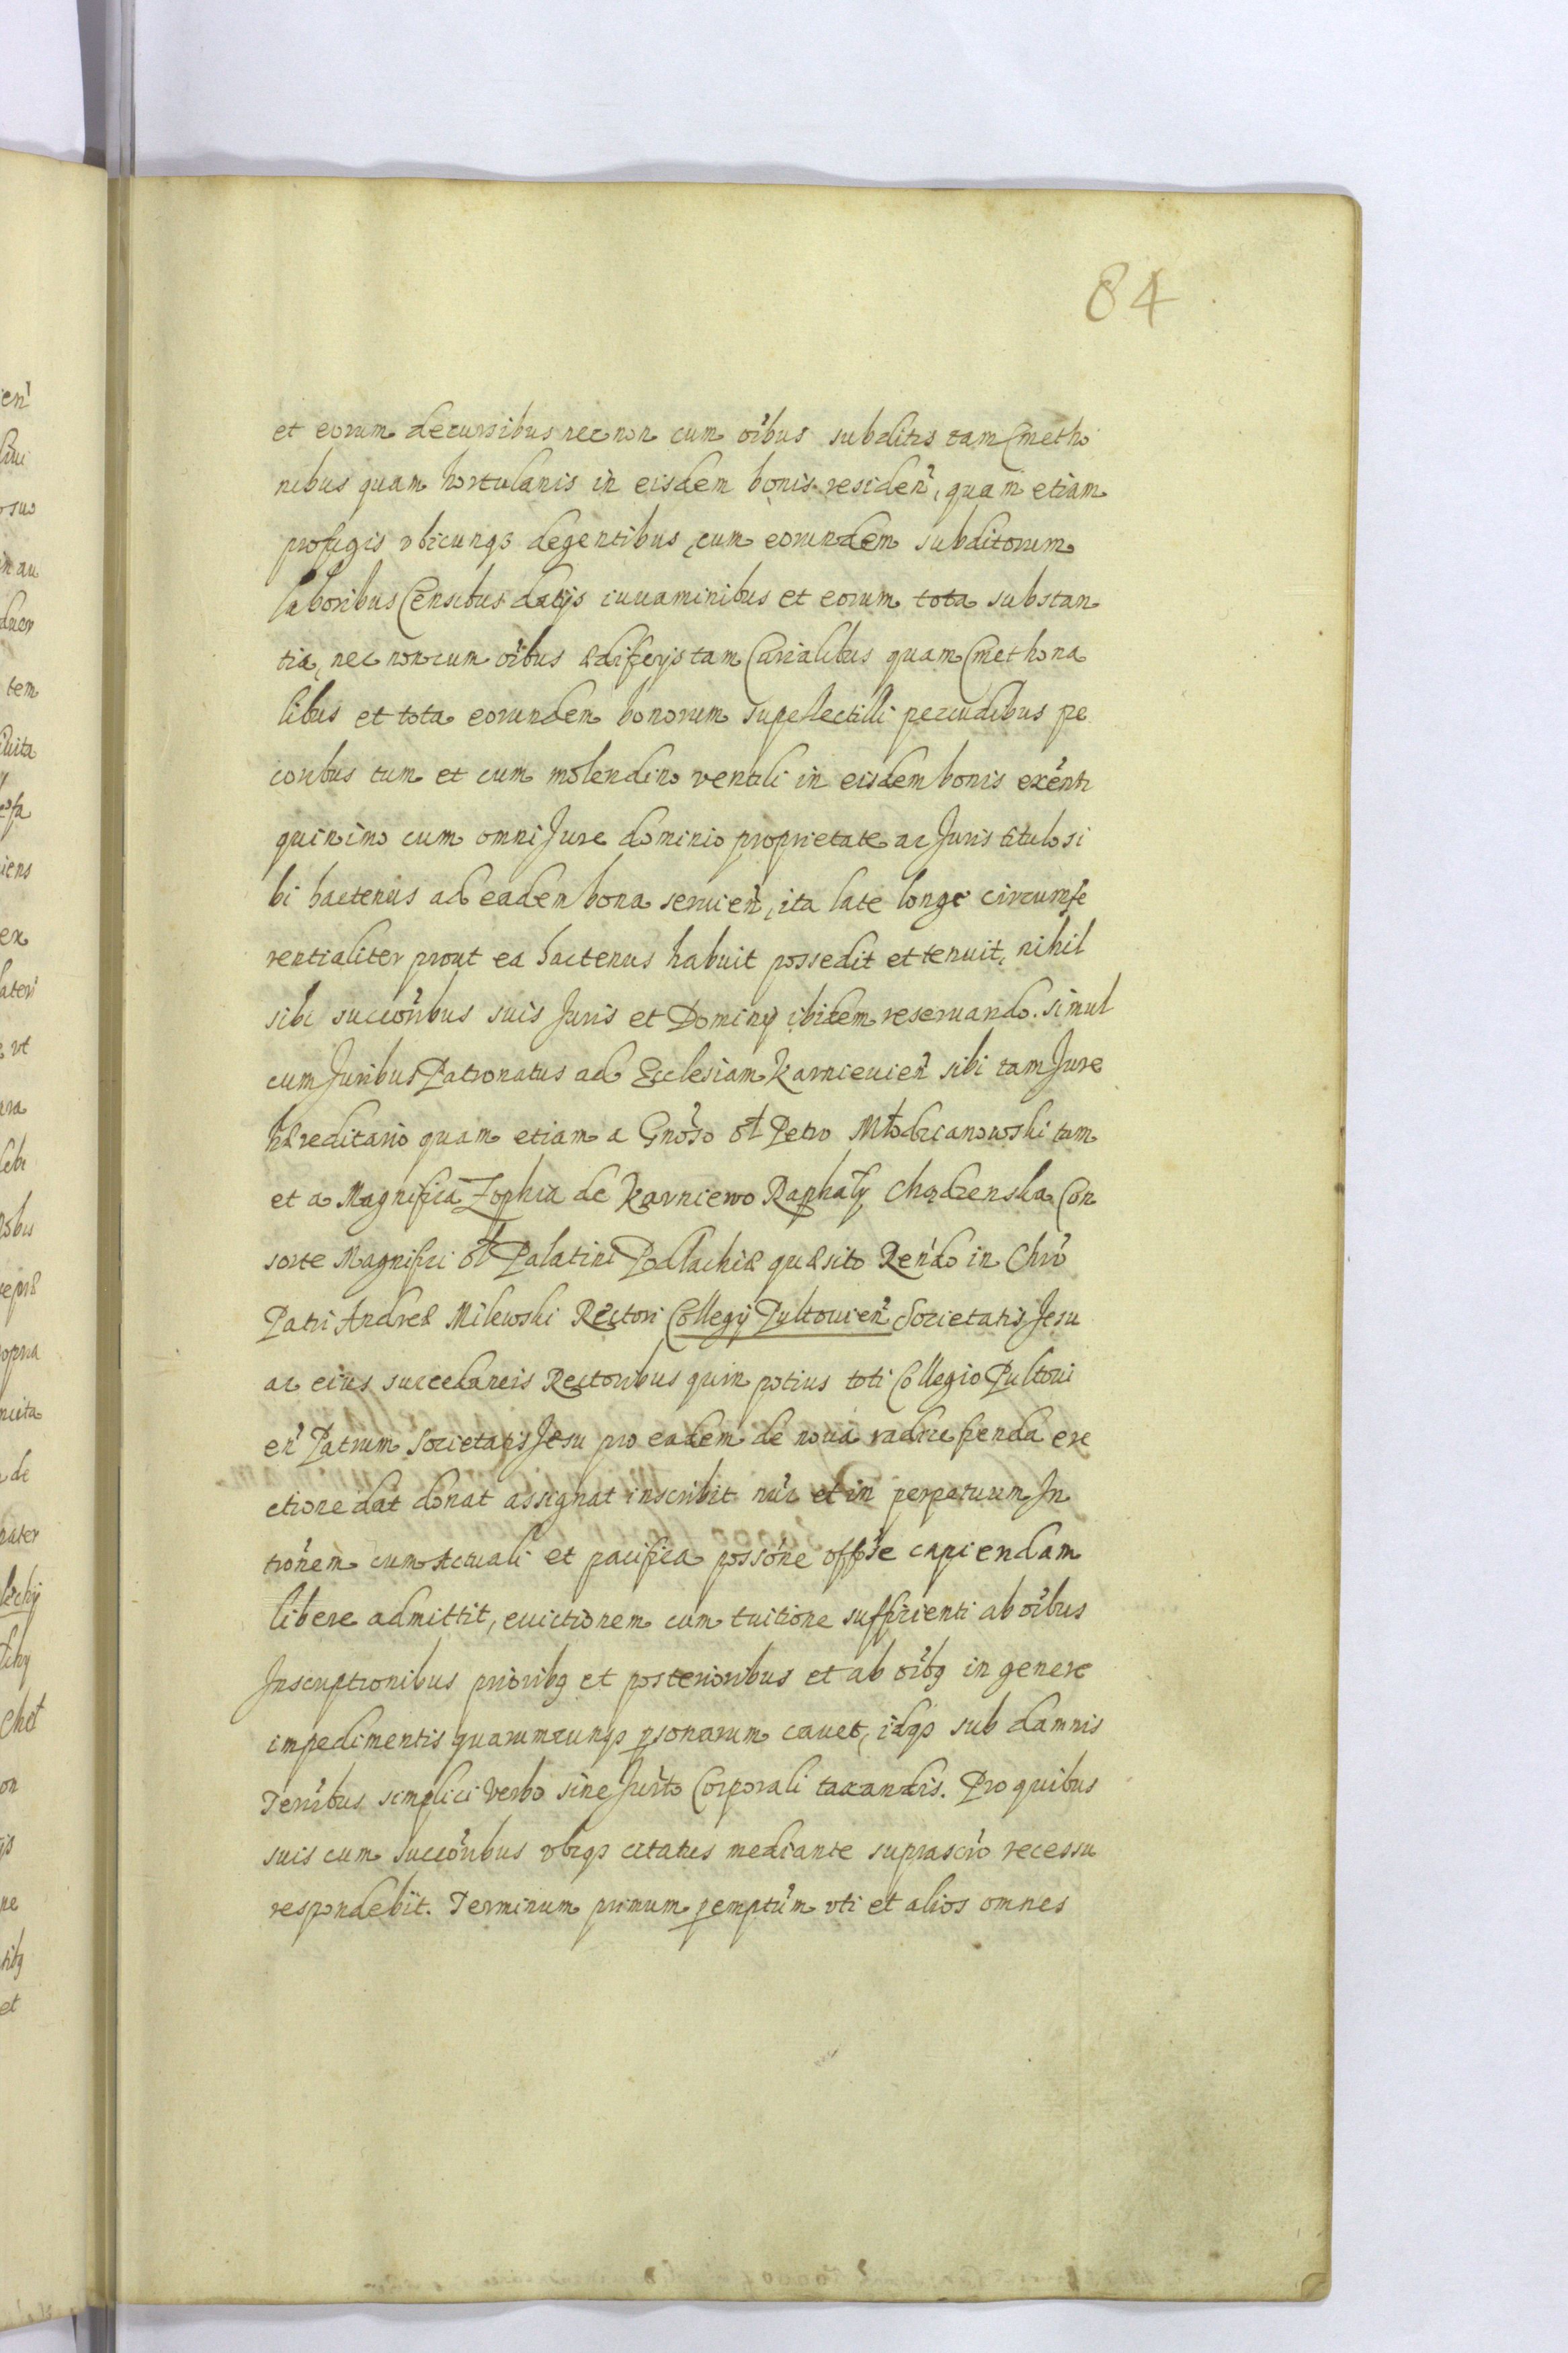 84
et eorum decursibus nec non cum oibus subditis tam Cmetho
nibus quam hortulanis in eisdem bonis residen, quam etiam
profugis vbicunqз degentibus, cum eorundem subditorum
laboribus Censibus datijs iuuaminibus et eorum tota substan
tia, nec non cum oibus ædificijs tam Curialibus quam Cmethona
libus et tota eorundem bonorum supellectilli pecudibus pe
coribus tum et cum molendino ventili in eisdem bonis exenti
quinimo cum omni Jure dominio proprietate ac Juris titulo si
bi hactenus ad eadem bona seruien, ita late longe circumfe
rentialiter prout ea hactenus habuit possedit et tenuit, nihil
sibi succoribus suis Juris et Dominij ibidem reseruando. simul
cum Juribus Patronatus ad Ecclesiam Karnieuien sibi tam Jure
hæreditario quam etiam a Gnoso ol Petro Młodzianowski tam
et a Magnifica Zophia de Karniewo Raphaly Chądzenska Con
sorte Magnifici ol Palatini Podlachiæ quæsito Rendo in Chro
Patri Andreæ Milewski Rectori Collegij Pultouien Societatis Jesu
ac eius succedaneis Rectoribus quin potius toti Collegio Pultoui
en Patrum Societatis Jesu pro eadem de noua radice fienda ere
ctione dat donat assignat inscribit nuc et in perpetuum In
tronem cum Actuali et pacifica possone offose capiendam
libere admittit, euictionem cum tuitione sufficienti ab oibus
Inscriptionibus prioribq et posterioribus et ab oibq in genere
impedimentis quarumcunqз psonarum cauet, idqз sub damnis
Terribus simplici verbo sine Jurto Corporali taxandis. Pro quibus
suis cum succoribus vbiqз citatus mediante suprascro recessu
respondebit. Terminum primum pemptum vti et alios omnes